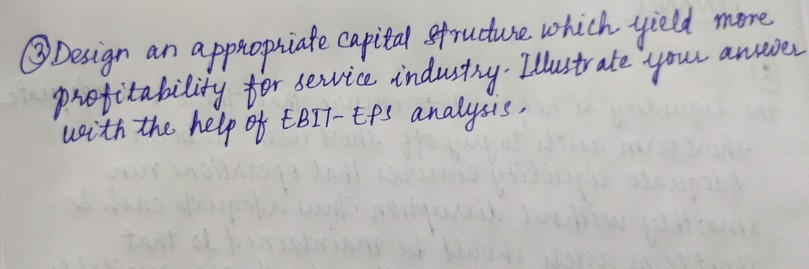 ③ Design an appropriate capital structure which yield more
profitability for service industry. Illustrate your answer
with the help of EBIT-EPS analysis.